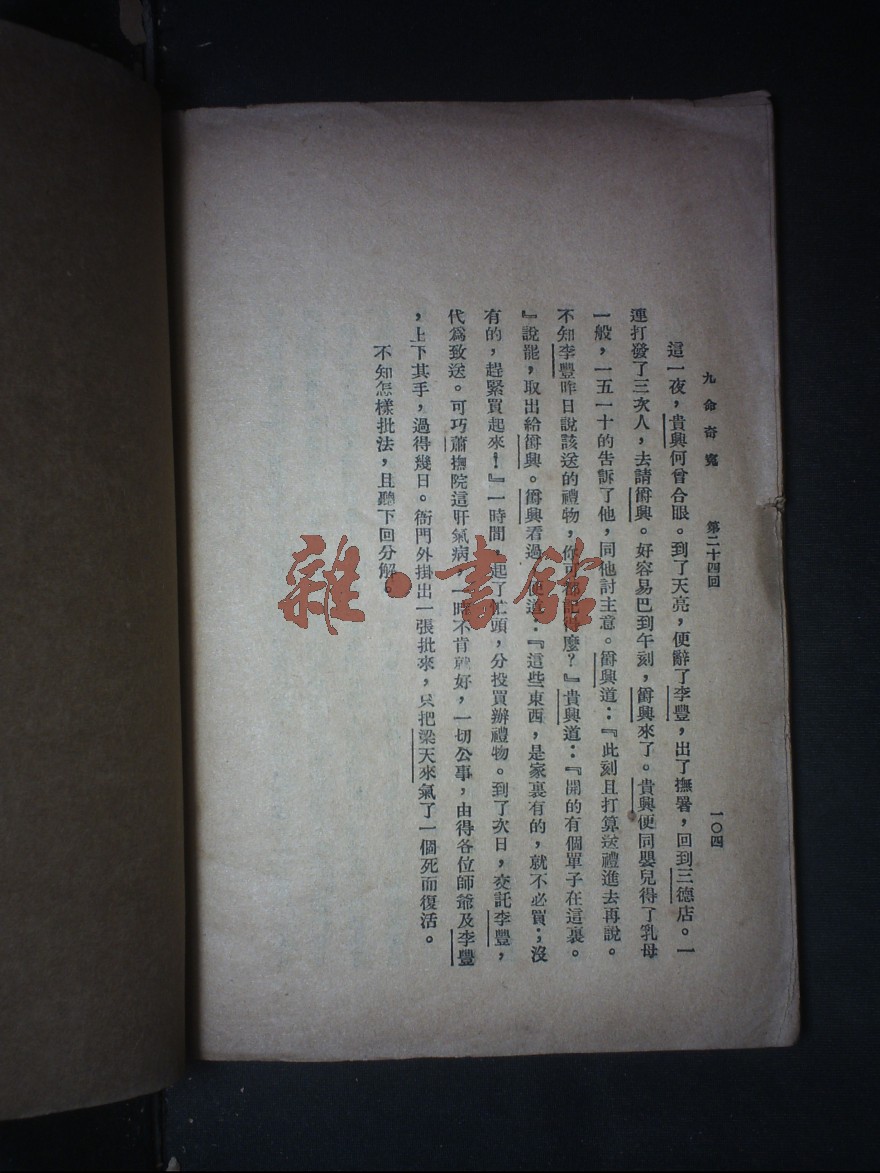 九命奇冤 第二十四回 一〇四
這一夜，貴興何曾合眼。到了天亮，便辭了李豐，出了撫署，回到三德店。一
連打發了三次人，去請爵興。好容易巴到午刻，爵興來了。貴興便同嬰兒得了乳母
一般，一五一十的告訴了他，同他討主意。爵興道：『此刻且打算送禮進去再說。
不知李豐昨日說該送的禮物，你可都記得麼？』貴興道：『開的有個單子在這裏。
』說罷，取出給爵興。爵興看過，便道：『這些東西，是家裏有的，就不必買；沒
有的，趕緊買起來！』一時間，起了忙頭，分投買辦禮物。到了次日，交託李豐，
代爲致送。可巧蕭撫院這肝氣病，一時不肯就好，一切公事，由得各位師爺及李豐
，上下其手，過得幾日。衙門外掛出一張批來，只把梁天來氣了一個死而復活。
不知怎樣批法，且聽下回分解。
雜·書館